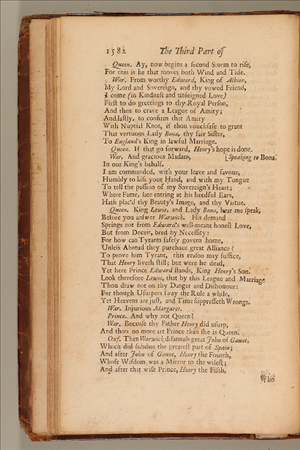 1582 The Third Part of
Queen. Ay, now begins a second Storm to rise,
For this is he that moves both Wind and Tide.
War. From worthy Edward, King of Albion,
My Lord and Sovereign, and thy vowed Friend,
I come (in Kindness and unfeigned Love)
First to do greetings to thy Royal Person,
And then to crave a League of Amity;
And lastly, to confirm that Amity
With Nuptial Knot, if thou vouchsafe to grant
That vertuous Lady Bona, thy fair Sister,
To England's King in lawful Marriage.
Queen. If that go forward, Henry's hope is done.
War. And gracious Madam, [Speaking to Bona.
In our King's behalf,
I am commanded, with your leave and favour,
Humbly to kiss your Hand, and with my Tongue
To tell the passion of my Sovereign's Heart;
Where Fame, late entring at his heedful Ears,
Hath plac'd thy Beauty's Image, and thy Virtue.
Queen. King Lewis, and Lady Bona, hear me speak,
Before you answer Warwick. His demand
Springs not from Edward's well-meant honest Love,
But from Deceit, bred by Necessity:
For how can Tyrants safely govern home,
Unless Abroad they purchase great Alliance?
To prove him Tyrant, this reason may suffice,
That Henry liveth still; but were he dead,
Yet here Prince Edward stands, King Henry's Son.
Look therefore Lewis, that by this League and Marriage
Thou draw not on thy Danger and Dishonour:
For though Usurpers sway the Rule a while,
Yet Heavens are just, and Time suppresseth Wrongs.
War. Injurious Margaret.
Prince. And why not Queen?
War. Because thy Father Henry did usurp,
And thou no more art Prince than she is Queen.
Oxf. Then Warwick disannuls great John of Gaunt,
Which did subdue the greatest part of Spain;
And after John of Gaunt, Henry the Fourth,
Whose Wisdom was a Mirror to the wisest;
And after that wise Prince, Henry the Fifth,
Who